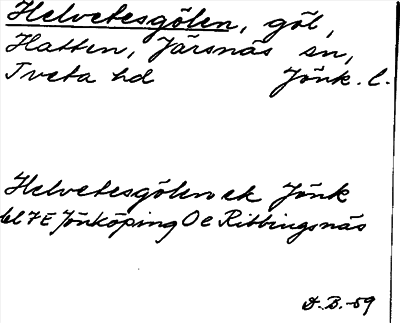 Helvetesgölen, göl,
Hatten, Järsnäs sn,
Tveta hd Jönk. l.
Helvetesgölen ek Jönk
bl 7E Jönköping O e Ribbingsnäs
D. B. -59